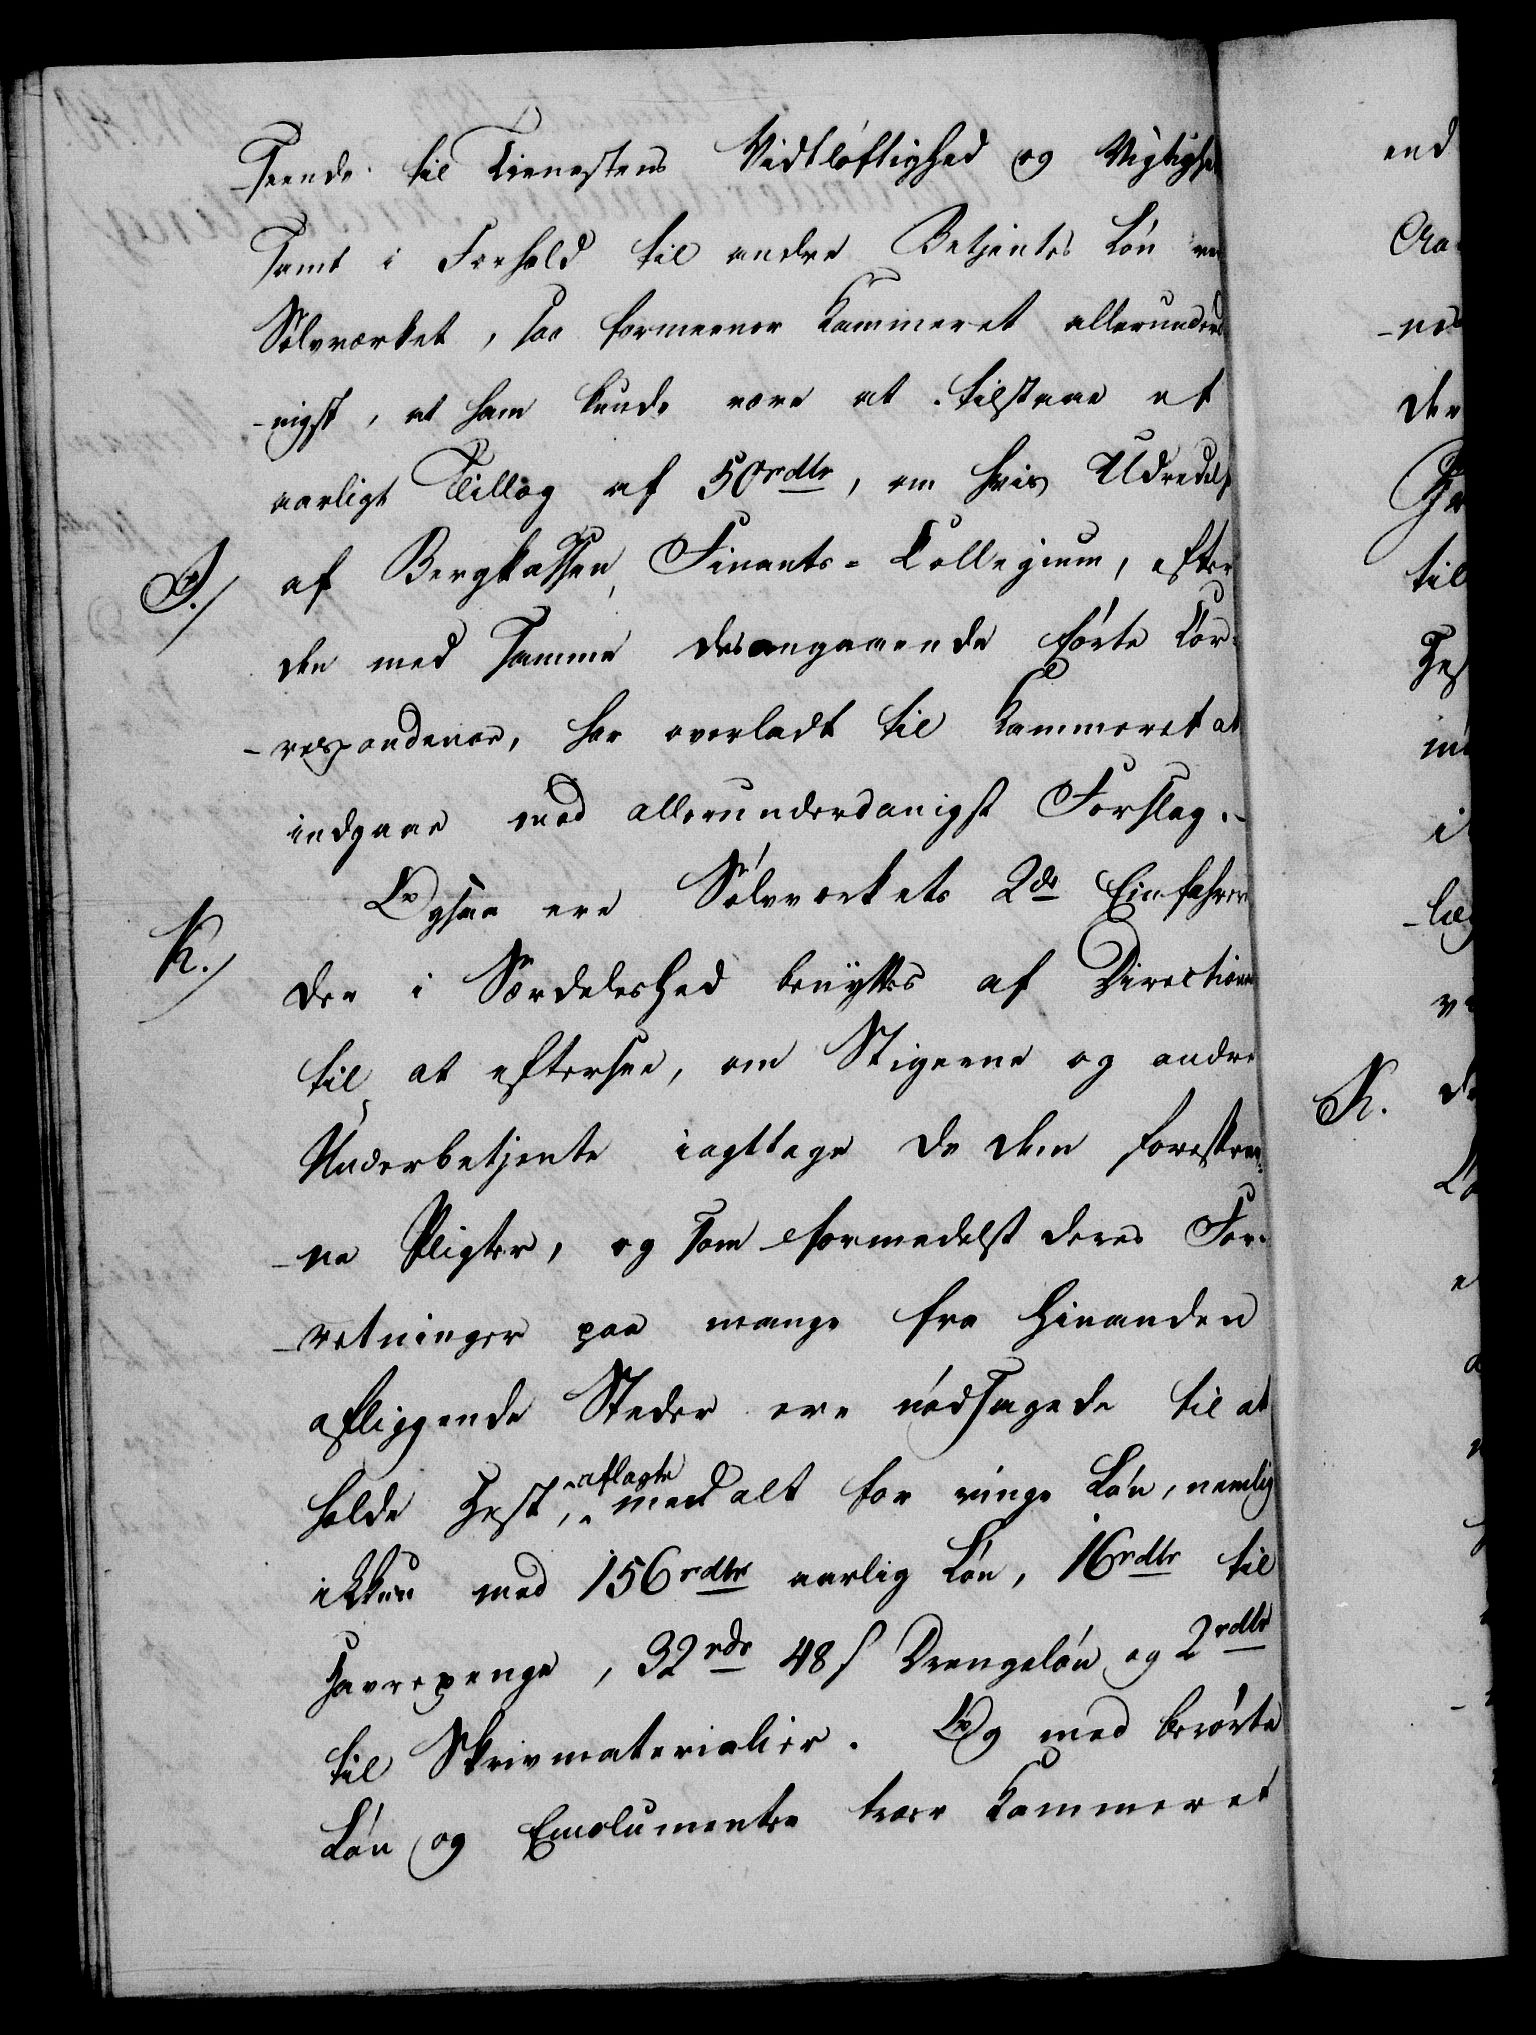 seende til Tienestens Vidtløftighed og Vigtighed
samt i Forhold til andre Betjentes Løn ved
Sølvværket, saa formeener Kammeret allerunderda-
-nigst, at ham kunde være at tilstaae et
aarligt Tillæg af 50 rdlr, om hvis Udredelse
J./ af Bergkassen, Finants-Collegium, efter
den med samme desangaaende førte Cor-
-respondence, har overladt til Kammeret at
indgaae med allerunderdanigst Forslag.-
Ogsaa ere Sølvværkets 2de Einfahrere
K./ der i Særdeleshed benyttes af Directionen
til at eftersee, om Stigerne og andre
Underbetjente iagttage de dem foreskrev-
-ne Pligter, og som formedelst deres For-
-retninger paa mange fra hinanden
afliggende Steder ere nødsagede til at
holde Hest, aflagte med alt for ringe Løn, nemlig
ikkun med 156 rdlr aarlig Løn, 16 rdlr til
Havrepenge, 32 rdr 48 s Drengeløn og 2 rdlr
til Skrivmaterialier. Og med berørte
Løn og Emolumenter troer Kammeret
end
der
til
K.